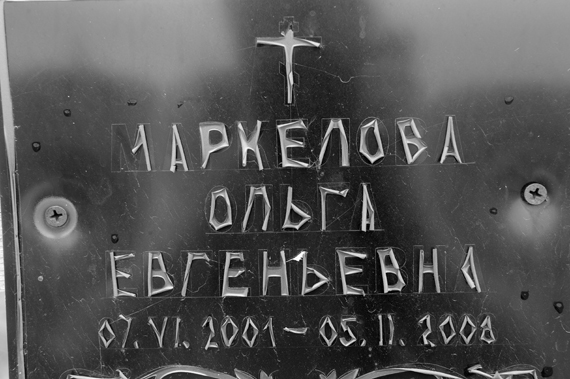 МАРКЕЛОВА
ОЛЬГА
ЕВГЕНЬЕВНА
07. VI. 2001 – 05. II. 2008